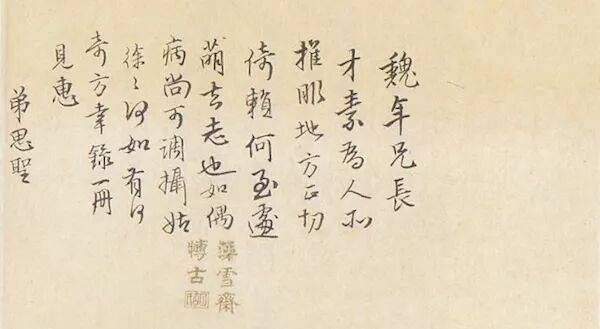 魏年兄長
才素為人所
推服地方正切
倚賴何至遽
萌去志也如偶
病尚可調攝姑
徐〻何如有何
奇方幸錄一冊
見惠
弟思聖
雪齋
古